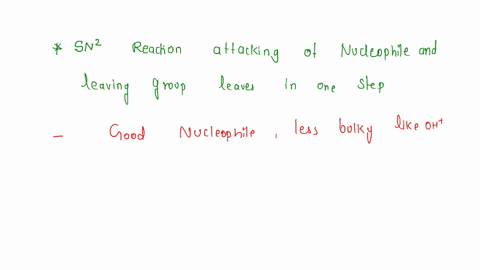 * SN² Reaction attacking of Nucleophile and
leaving group leaves in one step
- Good Nucleophile, less bulky like OH⁺